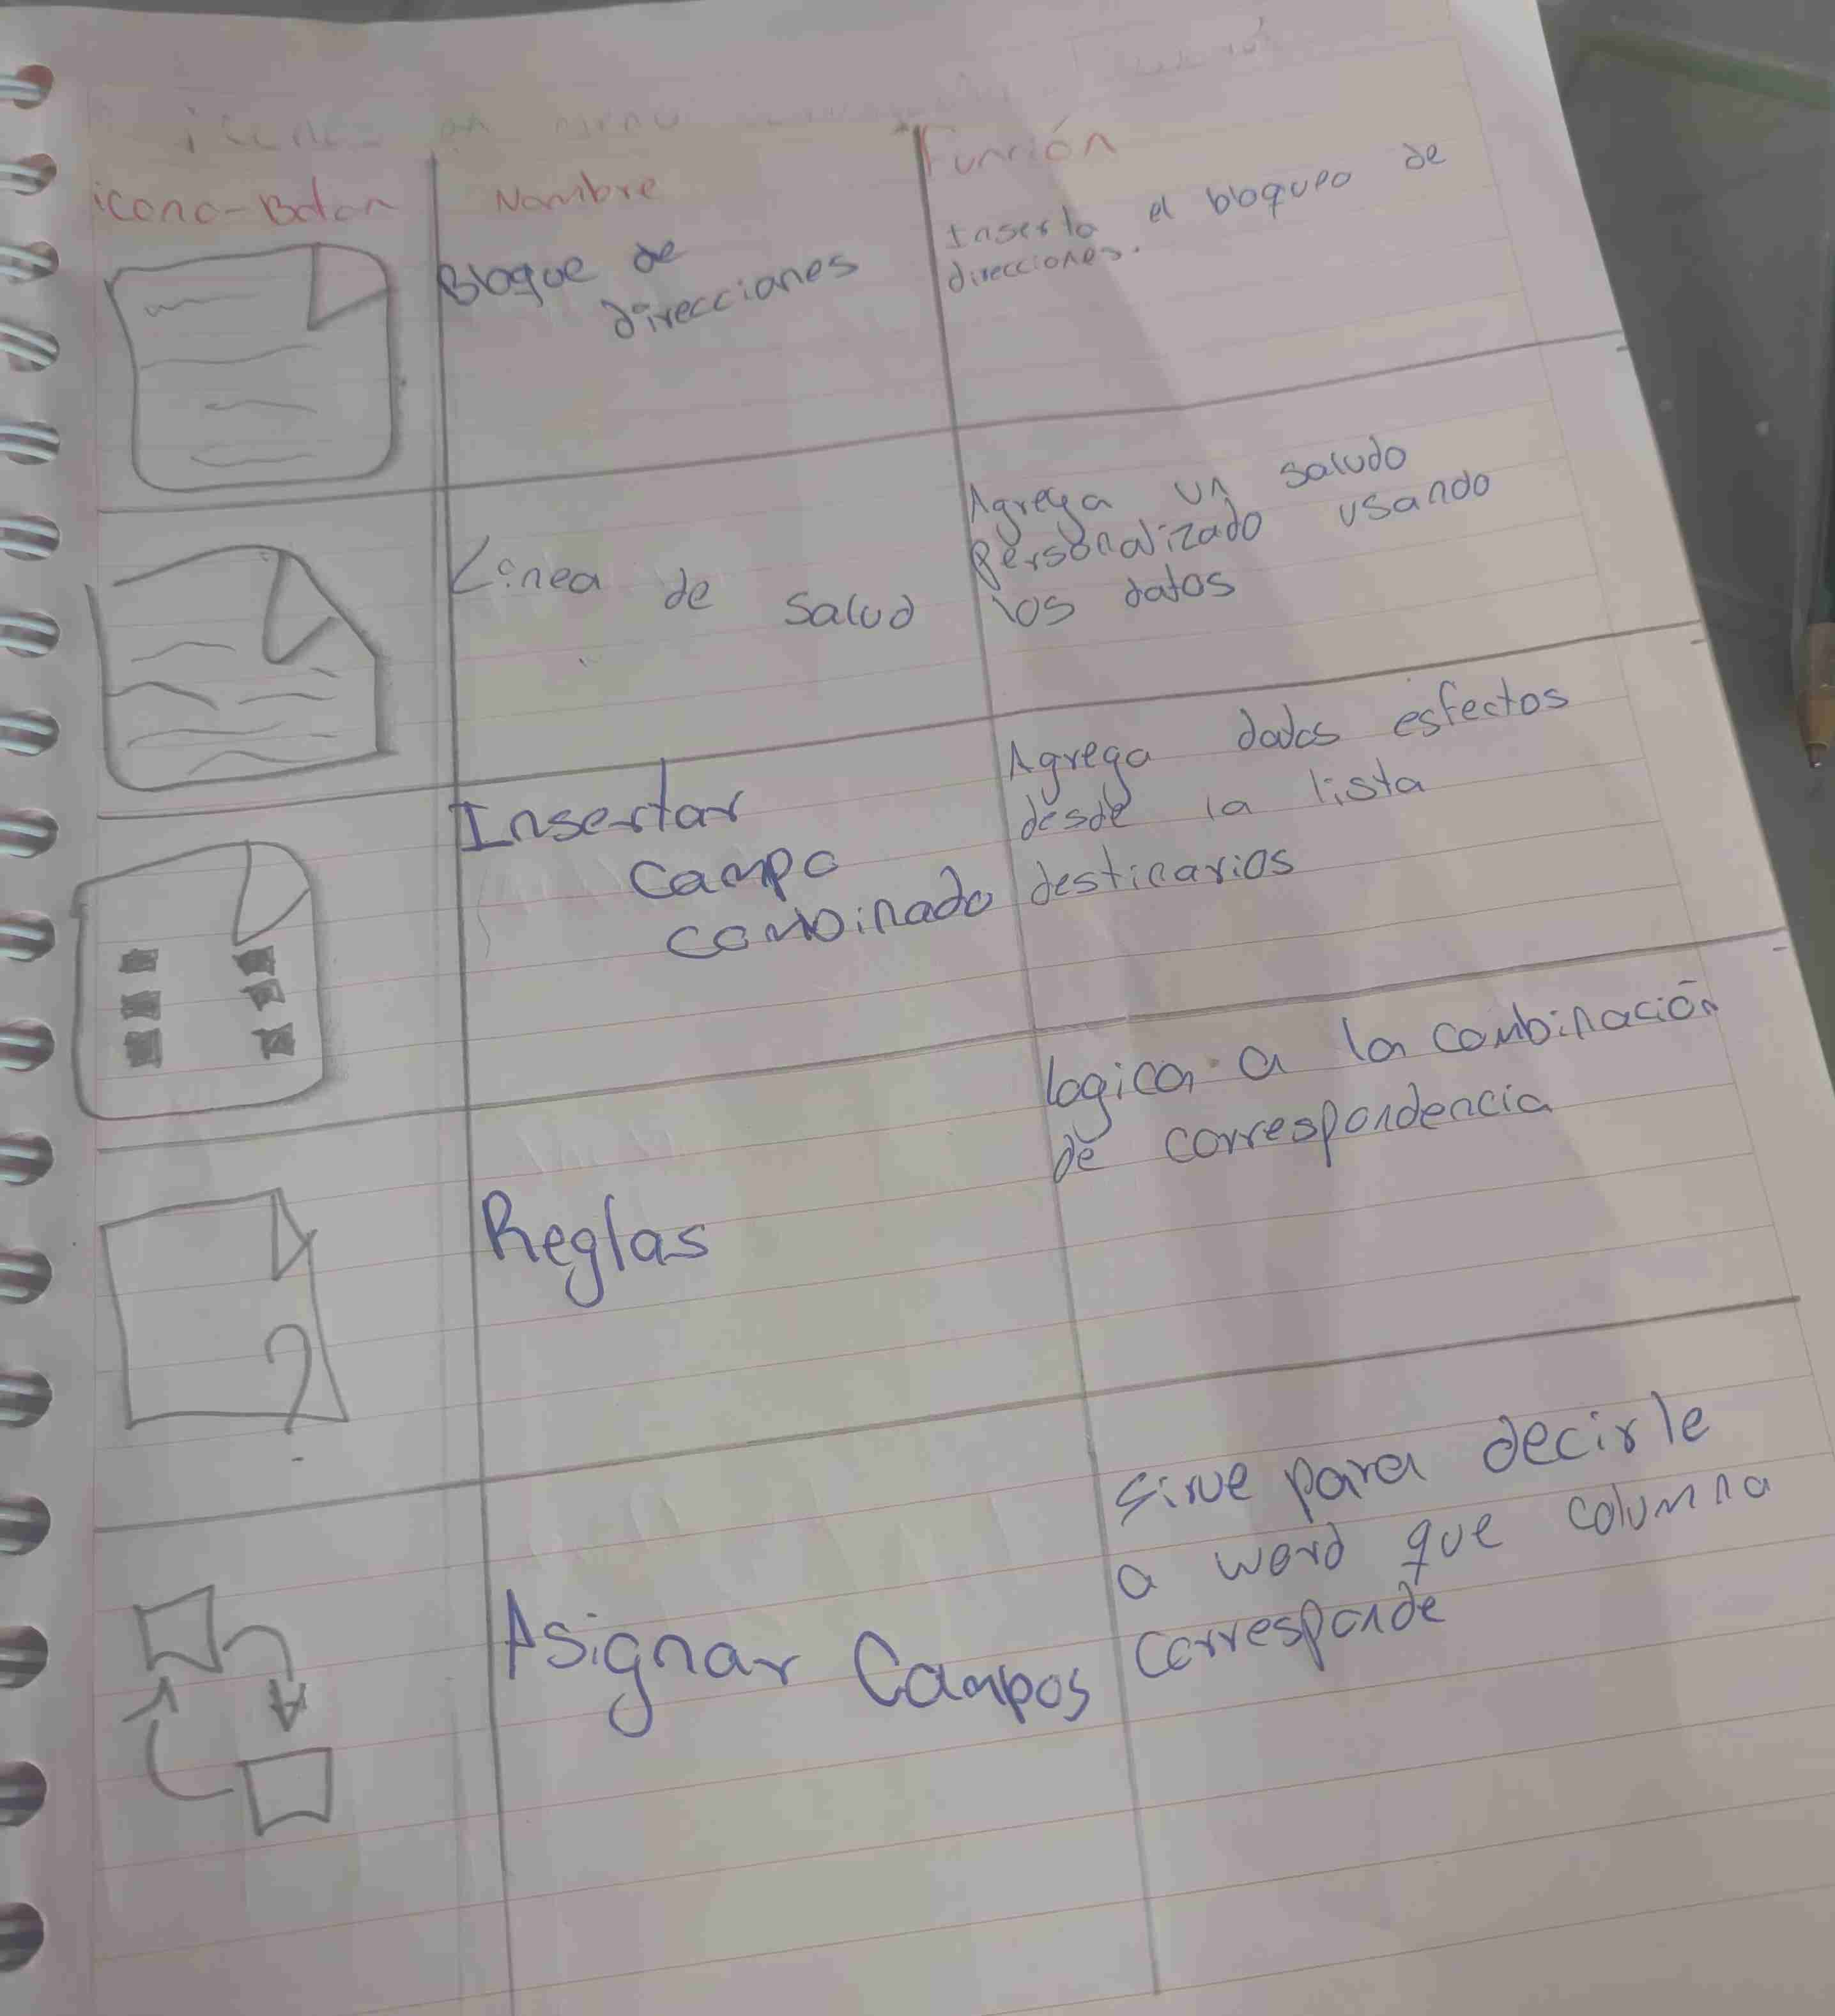 icono-Boton Nombre Función
Bloque de
direcciones
Inserta el bloqueo de
direcciones.
Linea de salud
Agrega un saludo
Personalizado usando
los datos
Insertar
campo
combinado
Agrega datos esfectos
desde la lista
desticarios
Reglas
logica a la combinación
de correspondencia
Asignar Campos
sirve para decirle
a word que columna
corresponde